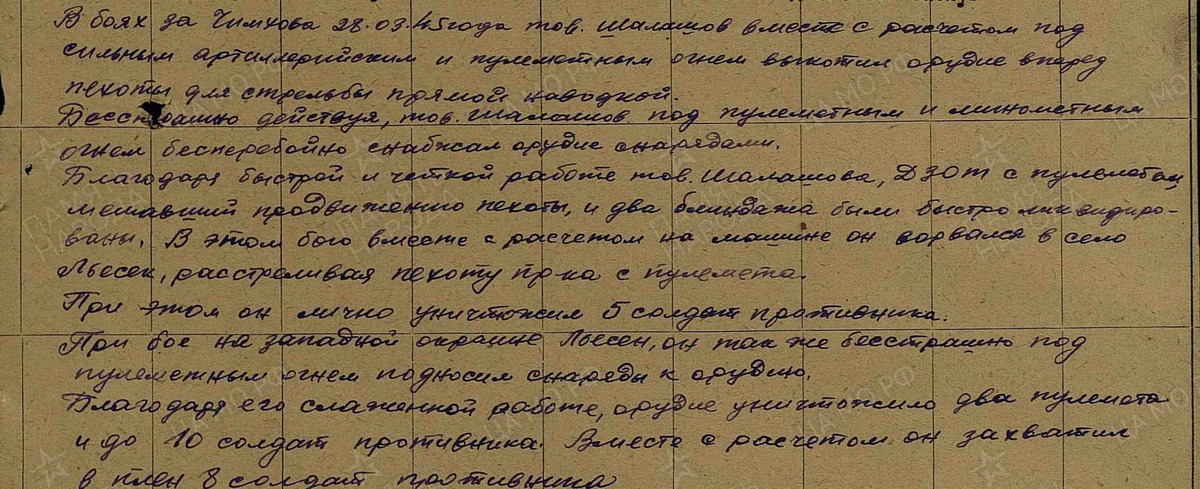 В боях за Чимхова 28.03.45 года тов. Шалашов вместе с расчетом под
сильным артиллерийским и пулеметным огнем выкотил орудие вперед
пехоты для стрельбы прямой наводкой.
Бесстрашно действуя, тов. Шалашов под пулеметным и минометным
огнем бесперебойно снабжал орудие снарядами.
Благодаря быстрой и четкой работе тов. Шалашова, ДЗОТ с пулеметом,
мешавший продвижению пехоты, и два блиндажа были быстро ликвидиро-
ваны. В этом бою вместе с расчетом на машине он ворвался в село
расстреливая пехоту пр-ка с пулемета.
При этом он лично уничтожил 5 солдат противника.
При бое на западной окраине он так же бесстрашно под
пулеметным огнем подносил снаряды к орудию.
Благодаря его слаженной работе, орудие уничтожило два пулемета
и до 10 солдат противника. Вместе с расчетом он захватил
в плен 8 солдат противника